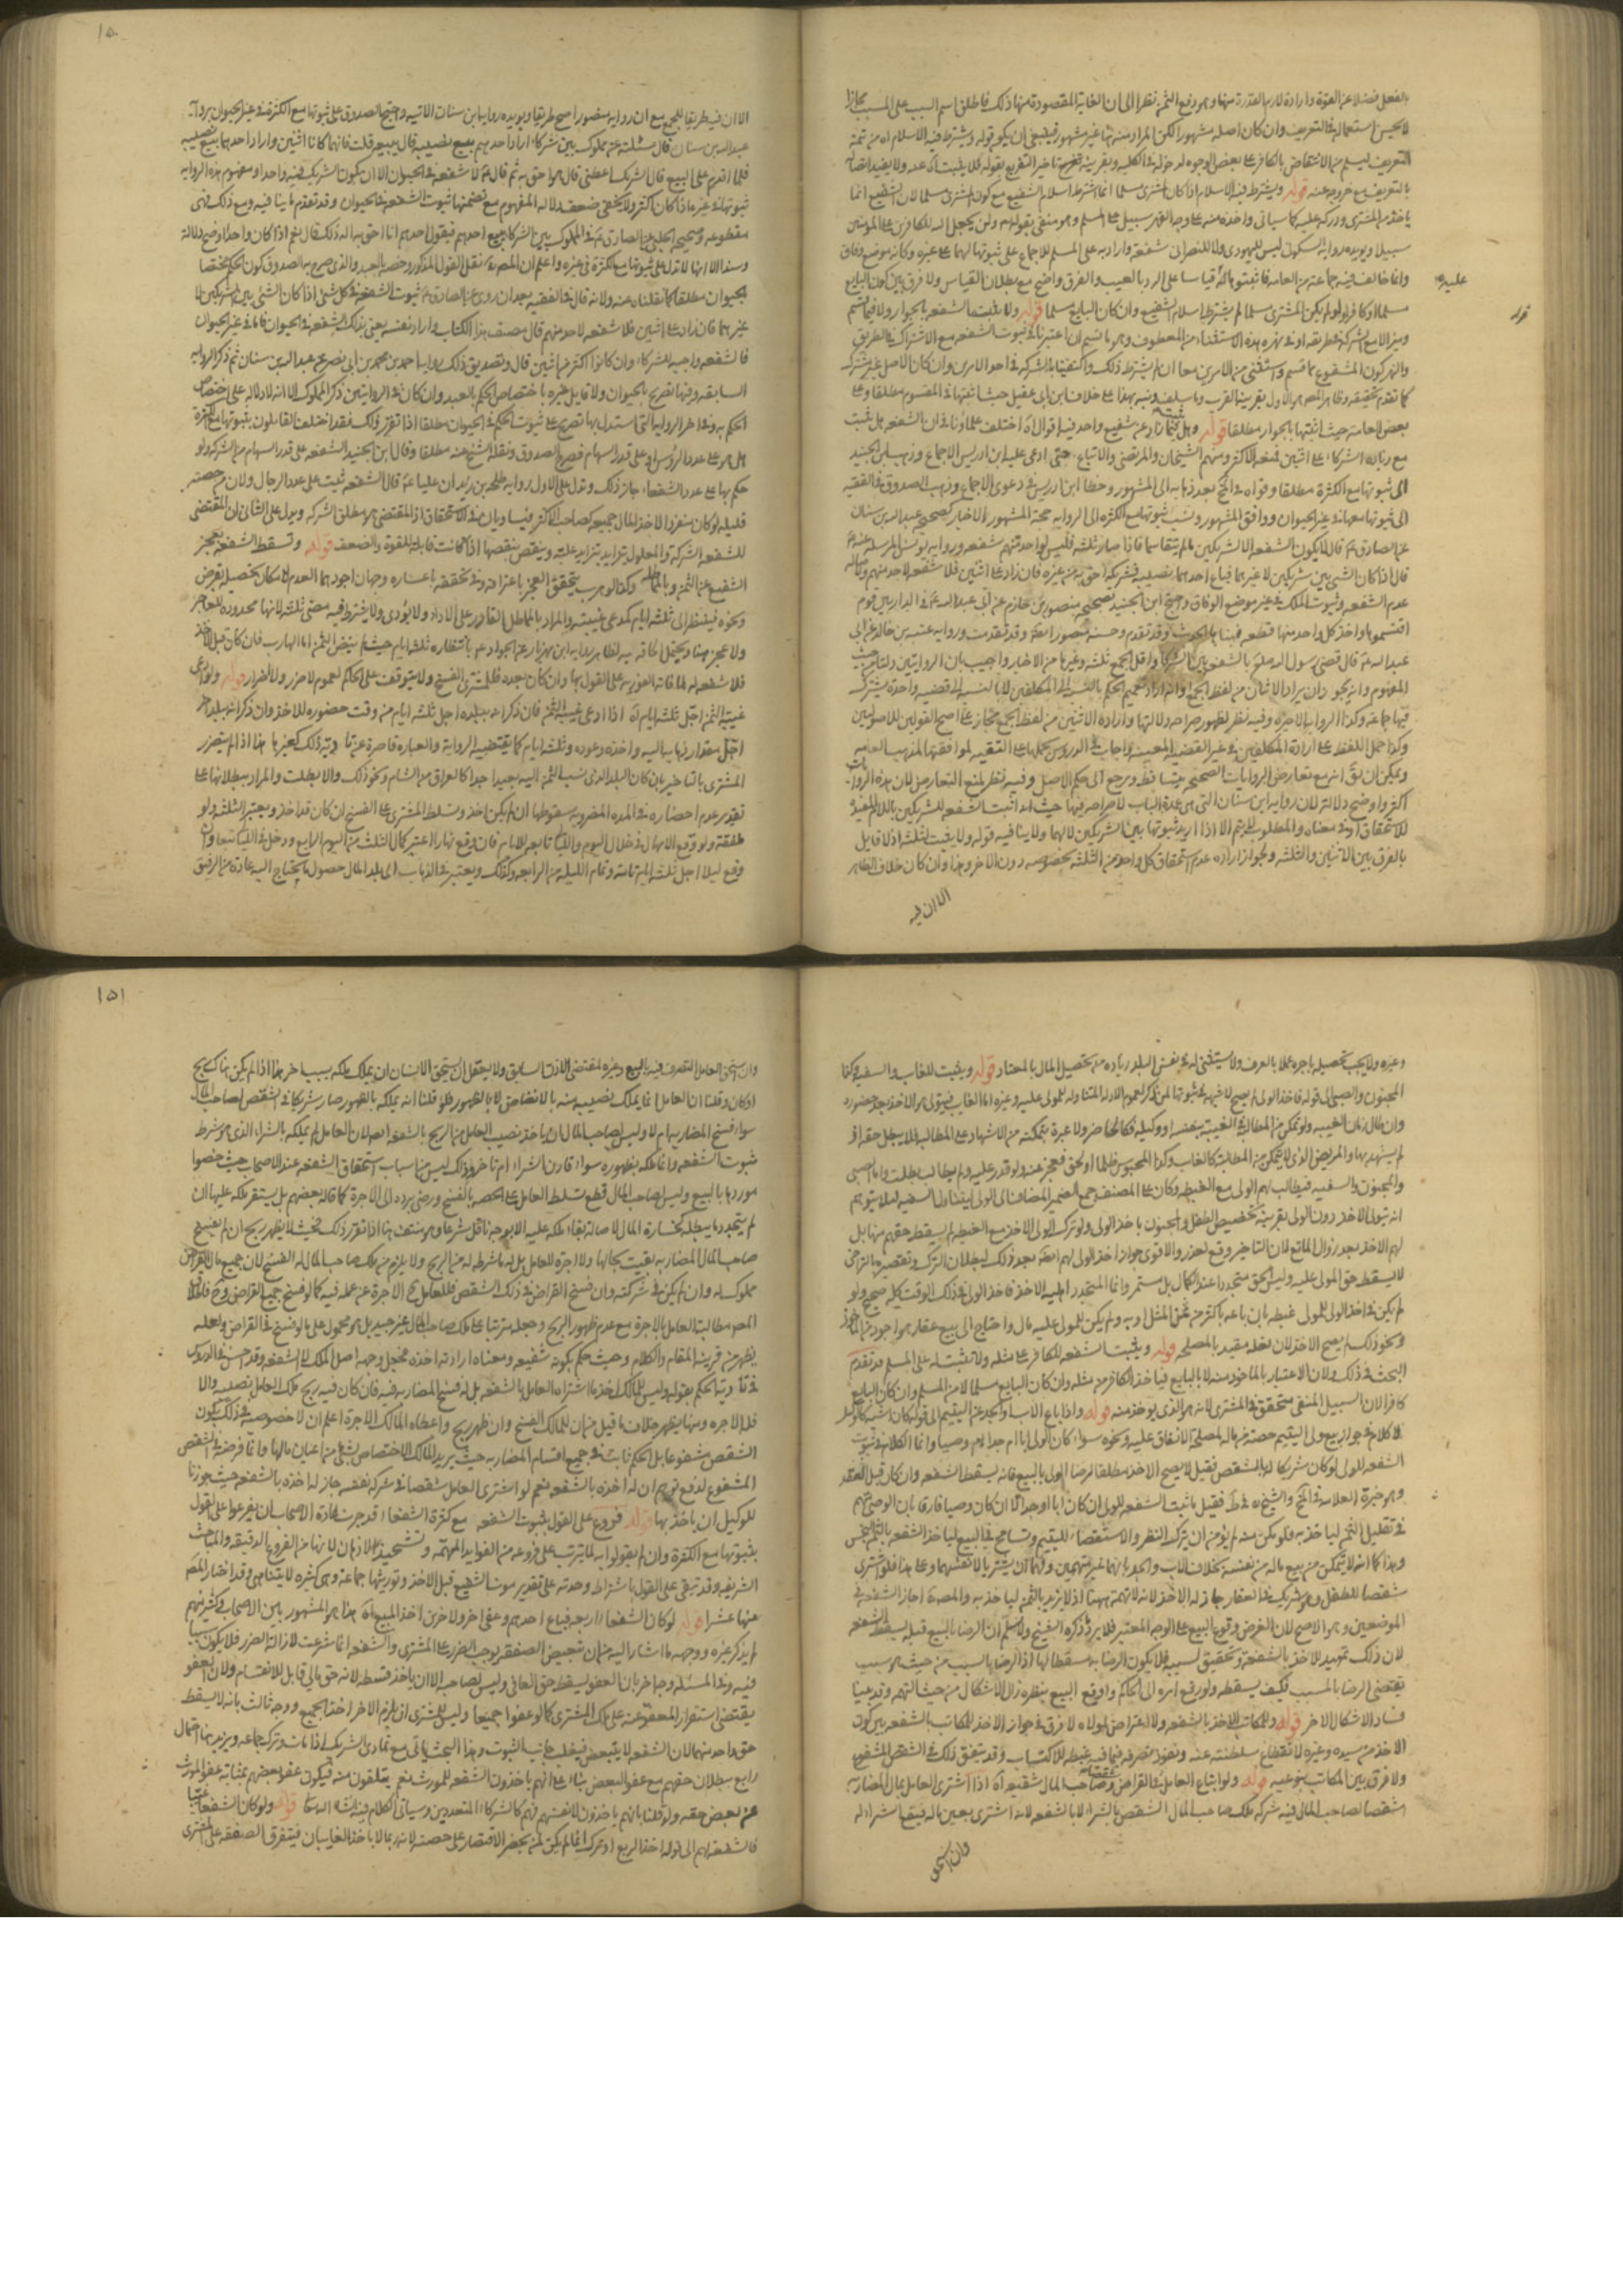 بالفعل فضلا عن القوة وارادة لازم القدرة منها وهو دفع الثمن نظرا الى ان الغاية المقصودة منها ذلك فاطلق اسم السبب على المسبب مجازا
لا يحسن استعماله في التعريف وان كان اصله مشهورا لكن المراد منه هنا غير مشهور فينبغي ان يكون قوله ويشترط فيه الاسلام اه من تتمة
التعريف ليسلم من الانتقاض بالكافر على بعض الوجوه لدخوله في الكلية وبقرينة
بالتعريف مع خروجه عنه قوله ويشترط فيه الاسلام اذا كان المشترى مسلما انما اشترط اسلام الشفيع مع كون المشترى مسلما لان الشفيع انما
ياخذ من المشترى ودركه عليه كما سياتى واخذه منه على وجه القهر سبيل على المسلم وهو منفى بقوله تعالى ولن يجعل الله للكافرين على المؤمنين
سبيلا ويؤيده رواية السكونى ليس لليهودى ولا للنصرانى شفعة واراد به على المسلم للاجماع على ثبوتها لهما على غيره وكانه موضع وفاق
وانما خالف فيه جماعة من العامة فاثبتوها له قياسا على الرد بالعيب والفرق واضح مع بطلان القياس ولا فرق بين كون البايع
مسلما او كافرا ولو لم يكن المشترى مسلما لم يشترط اسلام الشفيع وان كان البايع مسلما قوله ولا يثبت الشفعة بالجوار ولا فيما قسم
وميز الا مع الشركة في طريقه او نهره هذه الاستثناء من المعطوف وهو ما قسم ان اعتبرنا في ثبوت الشفعة مع الاشتراك في الطريق
والنهر كون المشفوع مما قسم واستثنى من الامرين معا ان لم يشترط ذلك واكتفينا بالشركة في احد الامرين وان كان الاصل غير مشترك
كما تقدم تحقيقه وظاهر المصنف هو الاول بقرينة القرب وما سلف ونبه بهذا على خلاف ابن ابى عقيل حيث اثبتها في المقسوم مطلقا وعلى
بعض العامة حيث اثبتها بالجوار مطلقا قوله وهل يثبت لما زاد عن شفيع واحد فيه اقوال اه اختلف علماؤنا في ان الشفعة هل تثبت
مع زيادة الشركاء على اثنين فمنعه الاكثر ومنهم الشيخان والمرتضى والاتباع حتى ادعى عليه ابن ادريس الاجماع وذهب ابن الجنيد
الى ثبوتها مع الكثرة مطلقا وقواه في المختلف بعد ذهابه الى المشهور وخطا ابن ادريس في دعوى الاجماع وذهب الصدوق في الفقيه
الى ثبوتها معها في غير الحيوان ووافق المشهور ونسب ثبوتها مع الكثرة الى الرواية حجة المشهور الاخبار كصحيحة عبد الله بن سنان
عن الصادق ع قال لا يكون الشفعة الا لشريكين ما لم يتقاسما فاذا صاروا ثلثة فليس لواحد منهم شفعة ورواية يونس المرسلة عنه ع
قال اذا كان الشئ بين شريكين لا غيرهما فباع احدهما نصيبه فشريكه احق به من غيره فان زاد على اثنين فلا شفعة لاحد منهم واصالة
عدم الشفعة وثبوت الملك في غير موضع الوفاق وحجة ابن الجنيد صحيحة منصور بن حازم عن ابى عبد الله ع في الدار بين قوم
اقتسموها واخذ كل واحد منها قطعة فبناها الحديث وقد تقدم وحسنة منصور ايضا وقد تقدمت ورواية عقبة بن خالد عن ابى
عبد الله ع قال قضى رسول الله صلع بالشفعة بين الشركاء واقل الجمع ثلثة وغيرها من الاخبار واجيب بان الروايتين دلتا من حيث
المفهوم وانه يجوز ان يراد الاثنان من لفظ الجمع او انه اراد تعميم الحكم بالنسبة الى المكلفين لا بالنسبة الى قضية واحدة يشترك
فيها جماعة وكذا الرواية الاخيرة وفيه نظر لظهور صراحة دلالتها وارادة الاثنين من لفظ الجمع مجاز على اصح القولين للاصوليين
وكذا حمل اللفظ على ارادة المكلفين في غير القضية المعينة واجاب في الدروس بحملها على التقية لموافقتها لمذهب العامة
ويمكن ان يق انه مع تعارض الروايات الصحيحة يتساقط ويرجع الى حكم الاصل وفيه نظر لمنع التعارض لان هذه الروايات
اكثر واوضح دلالة لان رواية ابن سنان التى هى عمدة الباب لا صراحة فيها حيث انه اثبت الشفعة للشريكين باللام المفيدة
للاستحقاق او ما في معناه والمطلوب لا يتم الا اذا اريد ثبوتها بين الشريكين لا لهما ولا ينافيه قوله ولا يثبت لثلثة اذ لا قايل
بالفرق بين الاثنين والثلثة ولجواز ارادة عدم استحقاق كل واحد من الثلثة بخصوصه دون الاخر وهذا وان كان خلاف الظاهر
الا ان فيه
١٥٠
الا ان فيه طريقا للجمع مع ان رواية منصور اصح طريقا ويؤيده رواية ابن سنان الاتية وحجة الصدوق على ثبوتها مع الكثرة في غير الحيوان برواية
عبد الله بن سنان قال سئلته عن مملوك بين شركاء اراد احدهم بيع نصيبه قال يبيعه قلت فانهما كانا اثنين واراد احدهما بيع نصيبه
فلما اقدم على البيع قال الشريك اعطنى قال هو احق به ثم قال ع لا شفعة في الحيوان الا ان يكون الشريك فيه واحدا ومفهوم هذه الرواية
ثبوتها في غيره اذا كان اكثر ولا يخفى ضعف دلالة المفهوم مع تضمنها ثبوت الشفعة في الحيوان وقد تقدم ما ينافيه ومع ذلك فهى
مقطوعة وصحيحة الحلبى عن الصادق ع في المملوك بين الشركاء يبيع احدهم فيقول احدهم انا احق به اله ذلك قال نعم اذا كان واحدا اوضح دلالة
وسندا الا انها لا تدل على ثبوتها مع الكثرة في غيره واعلم ان المصنف نقل القول المذكور وخصه بالعبد والذى صرح به الصدوق كون الحكم مختصا
بالحيوان مطلقا كما نقلناه عنه ولانه قال في الفقيه بعد ان روى عن الصادق ع ثبوت الشفعة في كل شئ اذا كان الشئ بين الشريكين لا
غيرهما فان زاد على اثنين فلا شفعة لاحد منهم قال مصنف هذا الكتاب واراد نفسه يعنى بذلك الشفعة في الحيوان فاما في غير الحيوان
فالشفعة واجبة للشركاء وان كانوا اكثر من اثنين قال وتصديق ذلك ما رواه احمد بن محمد بن ابى نصر عن عبد الله بن سنان ثم ذكر الرواية
السابقة وفيها التصريح بالحيوان ولا قايل غيره باختصاص الحكم بالعبد وان كان في الروايتين ذكر المملوك الا انه لا دلالة على اختصاص
الحكم به وفي اخر الرواية التى استدل بها تصريح على ثبوت الحكم في الحيوان مطلقا اذا تقرر ذلك فقد اختلف القائلون بثبوتها مع الكثرة
هل هو على عدد الرؤس او على قدر السهام فصرح الصدوق ونقله الشيخ عنه مطلقا وقال ابن الجنيد الشفعة على قدر السهام من الشركة ولو
حكم بها على عدد الشفعاء جاز ذلك وتدل على الاول رواية طلحة بن زيد ان عليا ع قال الشفعة تثبت على عدد الرجال ولان من حصته
قليلة لو كان منفردا لاخذ المال جميعه كصاحب الاكثر فيتساويان في الاستحقاق اذ المقتضى هو مطلق الشركة ويدل على الثانى ان المقتضى
للشفعة الشركة والمعلول يتزايد بتزايد علته وينقص بنقصها اذا كانت قابلة للقوة والضعف قوله وتسقط الشفعة بعجز
الشفيع عن الثمن وبالمماطلة وكذا لو هرب يتحقق العجز باعترافه وفي تحققه باعساره وجهان اجودهما العدم لامكان تحصيله بقرض
ونحوه فينظر الى ثلثة ايام كمدعى غيبته والمراد بالماطل القادر على الاداء ولا يؤدى ولا يشترط فيه مضى ثلثة لانها محدودة للعاجز
ولا عجز هنا ويحتمل الحاقه به لظاهر رواية ابن مهزيار عن الجواد ع بانتظاره ثلثة ايام حيث لم ينض الثمن اما الهارب فان كان قبل الاخذ
فلا شفعة له لمنافاته الفورية على القول بها وان كان بعده فللمشترى الفسخ ولا يتوقف على الحاكم لعموم لا ضرر ولا اضرار قوله ولو ادعى
غيبة الثمن اجل ثلثة ايام اه اذا ادعى غيبة الثمن فان ذكر انه ببلده اجل ثلثة ايام من وقت حضوره للاخذ وان ذكر انه ببلد اخر
اجل مقدار ذهابه اليه واخذه وعوده وثلثة ايام كما يقتضيه الرواية والعبارة قاصرة عن تادية ذلك كغيرها هذا اذا لم يتضرر
المشترى بالتاخير بان كان البلد الذى نسب الثمن اليه بعيدا جدا كالعراق من الشام ونحو ذلك والا بطلت والمراد ببطلانها على
تقدير عدم احضاره في المدة المضروبة سقوطها ان لم يكن اخذ وتسلط المشترى على الفسخ ان كان قد اخذ ويعتبر الثلثة ولو
ملفقة ولو وقع الامهال في خلال اليوم والليالى تابعة للايام فان وقع نهارا اعتبر كمال الثلث من اليوم الرابع ودخل في الليالى تبعا وان
وقع ليلا اجل ثلثة ايام تامة وتمام الليلة من الرابعة وكذلك ويعتبر في الذهاب الى بلد المال حصول ما يحتاج اليه عادة من الرفيق
وغيره ولا يجب تحصيله باجرة عملا بالعرف ولا يستثنى له عن نفس البلد زيادة من تحصيل المال بالمعتاد قوله ويثبت للغايب والسفيه وكذا
المجنون والصبى الى قوله فاخذ الولى لم يصح لا شبهة في ثبوتها لمن ذكر لعموم الادلة المتناولة للمولى عليه وغيره اما الغايب فيتولى هو الاخذ بعد حضوره
وان طال زمان الغيبة ولو تمكن من المطالبة في الغيبة بنفسه او وكيله فكالحاضر ولا عبرة بتمكنه من الاشهاد على المطالبة فلا يبطل حقه لو
لم يشهد بها والمريض الذى لا يتمكن من المطالبة كالغايب وكذا المحبوس ظلما او بحق فعجز عنه ولو قدر عليه ولم يطالب بطلت واما الصبى
والمجنون والسفيه فيطالب لهم الولى مع الغبطة وكان على المصنف جمع الضمير المضاف الى الولى ليتناول السفيه ليلا يتوهم
انه يتولى الاخذ دون الولى بقرينة تخصيص الطفل والمجنون باخذ الولى ولو ترك الولى الاخذ مع الغبطة لم يسقط حقهم منها بل
لهم الاخذ بعد زوال المانع لان التاخير وقع لعذر والاقوى جواز اخذ الولى لهم ايضا بعد ذلك لبطلان الترك وتقصيره بالتراخى
لا يسقط حق المولى عليه وليس الحق متجددا عند الكمال بل مستمر وانما المتجدد اهلية الاخذ فاخذ الولى في ذلك الوقت كله صحيح ولو
لم يكن في اخذ الولى للمولى غبطة بان باعه باكثر من ثمن المثل او به ولم يكن للمولى عليه مال واحتاج الى بيع عقار هو اجود من الماخوذ
ونحو ذلك لم يصح الاخذ لان فعله مقيد بالمصلحة قوله ويثبت الشفعة للكافر على مثله ولا يثبت له على المسلم قد تقدم
البحث في ذلك ولان الاعتبار بالماخوذ منه لا بالبايع فياخذ الكافر من مثله وان كان البايع مسلما لا من المسلم وان كان البايع
كافرا لان السبيل المنفى متحقق في المشترى لانه هو الذى يؤخذ منه قوله واذا باع الاب او الجد عن اليتيم الى قوله كان اشبه كالوكيل
لا كلام في جواز بيع ولى اليتيم حصته من ماله لمصلحة الانفاق عليه ونحوه سواء كان الولى ابا ام جدا ام وصيا وانما الكلام في ثبوت
الشفعة للولى لو كان شريكا له بالشقص فقيل لا يصح الاخذ مطلقا لرضا الولى بالبيع فانه يسقط الشفعة وان كان قبل العقد
وهو خيرة العلامة في المختلف والشيخ ره في ط فقيل باثبت الشفعة للولى ان كان ابا او جدا لا ان كان وصيا فارقا بان الوصى متهم
في تقليل الثمن لياخذ به فلو مكن منه لم يؤمن ان يترك النظر والاستقصاء لليتيم وتسامح في البيع لياخذ الشفعة بالثمن البخس
وهذا كما انه لا يتمكن من بيع ماله من نفسه بخلاف الاب والجد بانهما غير متهمين ولهما ان يشتريا لانفسهما وعلى هذا فلو اشترى
شقصا للطفل وهو شريك في العقار جاز له الاخذ لانه لا تهمة ههنا اذ لا يزيد بالثمن لياخذ به والمصنف اجاز الشفعة في
الموضعين وهو الاصح لان الغرض وقوع البيع على الوجه المعتبر فلا يرد ما ذكره الشيخ ولا نسلم ان الرضا بالبيع قبله يسقط الشفعة
لان ذلك تمهيد الاخذ بالشفعة وتحقيق لسببه فلا يكون الرضا به مسقطا لها اذ الرضا بالسبب من حيث هو سبب
يقتضى الرضا بالمسبب فكيف يسقطه ولو رفع امره الى الحاكم واوقع البيع بنظره زال الاشكال من حيث التهمة وقد عينا
فساد الاشكال الاخر قوله وللمكاتب الاخذ بالشفعة ولا اعتراض لمولاه لا فرق في جواز الاخذ للمكاتب بالشفعة بين كون
الاخذ من سيده وغيره لانقطاع سلطنته عنه ونفوذ تصرفه فيما فيه غبطة للاكتساب وقد يتفق ذلك في الشقص المشفوع
ولا فرق بين المكاتب بنوعيه قوله ولو ابتاع العامل في القراض شقصا وصاحب المال شفيعه اه اذا اشترى العامل بمال المضاربة
شقصا لصاحب المال فيه شركة ملك صاحب المال الشقص بالشراء لا بالشفعة لانه اشترى بعين ماله فيقع الشراء له
وان استحق
١٥١
وان استحق العامل التصرف فيه بالبيع وغيره لمقتضى الاذن السابق ولا يعقل ان يستحق الانسان ان يملك ملكه بسبب اخر هذا اذا لم يكن هناك ربح
او كان وقلنا ان العامل انما يملك نصيبه منه بالانضاض لا بالظهور فلو قلنا انه يملكه بالظهور صار شريكا في الشقص لصاحب المال
سواء فسخ المضاربة ام لا وليس لصاحب المال ان ياخذ نصيب العامل من الربح بالشفعة اصلا لان العامل لم يملكه بالشراء الذى هو شرط
ثبوت الشفعة وانما ملكه بظهوره سواء قارن الشراء ام تاخر وذلك ليس من اسباب استحقاق الشفعة عند الاصحاب حيث خصوا
موردها بالبيع وليس لصاحب المال قطع تسلط العامل على الحصة بالفسخ ورضى برده الى الاجرة كما قاله بعضهم بل يستقر ملكه عليها ان
لم يتجدد ما يبطله كخسارة المال لاصالة بقاء ملكه عليه الا بوجه ناقل شرعا وهو منتف هنا اذا تقرر ذلك فحيث لا يظهر ربح ان لم يفسخ
صاحب المال المضاربة بقيت بحالها ولا اجرة للعامل بل له ما شرطه له من الربح ولا يلزم من ملك صاحب المال له الفسخ لان جميع مال القراض
مملوك له وان لم يكن في شركته وان فسخ القراض في ذلك الشقص فللعامل الاجرة عن عمله فيه كما لو فسخ جميع القراض
المص مطالبة العامل بالاجرة مع عدم ظهور الربح وجعله مترتبا على ملك صاحب المال غير جيد بل هو محمول على ما لو فسخ في القراض ولعله
يظهر من قرينة المقام والكلام وحيث حكم بكونه شفيعه ومعناه ارادته اخذه فجعل وجهه اصل الملك لا الشفعة وقد احسن في الدروس
في تادية الحكم بقوله وليس للمالك اخذ ما اشتراه العامل بالشفعة بل له فسخ المضاربة فيه فان كان فيه ربح ملك العامل نصيبه والا
فله الاجرة ومنها يظهر خلاف ما قيل من ان للمالك الفسخ وان ظهر ربح واعطاه المالك الاجرة اعلم ان لا خصوصية في ذلك بكون
الشقص مشفوعا بل الحكم ثابت في جميع اقسام المضاربة حيث يريد المالك الاختصاص بشئ من اعيان مالها وانما فرضه في الشقص
المشفوع لدفع توهم ان له اخذه بالشفعة نعم لو اشترى العامل شقصا في شركة نفسه جاز له اخذه بالشفعة حيث جوزنا
للوكيل ان ياخذ بها قوله فروع على القول بثبوت الشفعة مع كثرة الشفعاء قد جرت عادة الاصحاب ان يفرعوا على القول
بثبوتها مع الكثرة وان لم يقولوا به لما يترتب على فروعه من الفوايد المهمة وتشحيذا للاذهان لما فيها من الفروع الدقيقة والمباحث
الشريفة وقد تبقى على القول باشتراط وحدته على تقدير موت الشفيع قبل الاخذ وتوريثها جماعة وهى كثيرة لا يتناهى وقد اختار المص
منها عشرا قوله لو كان الشفعاء اربعة فباع احدهم وعفى اخر وللاخرين اخذ المبيع اه هذا هو المشهور بين الاصحاب وكثير منهم
لم يذكر غيره ووجهه ما اشار اليه من ان تبعيض الصفقة يوجب الضرر على المشترى والشفعة انما شرعت لازالة الضرر فلا يكون سببا
فيه وفي المسئلة وجه اخر بان العفو يسقط حق العافى وليس لصاحبه الا ان ياخذ قسطه لانه حق مالى قابل للانقسام ولان العفو
يقتضى استقرار المعفو عنه على ملك المشترى كما لو عفوا جميعا وليس للمشترى ان يلزم الاخر اخذ الجميع ووجه ثالث بانه لا يسقط
حق واحد منهما لان الشفعة لا يتبعض فيغلب جانب الثبوت وهذا البحث ياتى مع تمادى الشريك اذا مات وترك جماعة ويزيد هنا احتمال
رابع ببطلان حقهم مع عفو البعض بناء على انهم ياخذون الشفعة للمورث نعم يتلقون منه فيكون عفو بعضهم بمثابة عفو المورث
عن بعض حقه ولو قلنا بانهم ياخذون لانفسهم فهم كالشركاء المتعددين وسياتى الكلام فيه انشاء الله تعالى قوله ولو كان الشفعاء غيبا
فالشفعة لهم الى قوله اخذ الربع او ترك انما لم يكن لمن يحضر الاقتصار على حصته لانه ربما لا ياخذ الغايبان فيتفرق الصفقة على المشترى